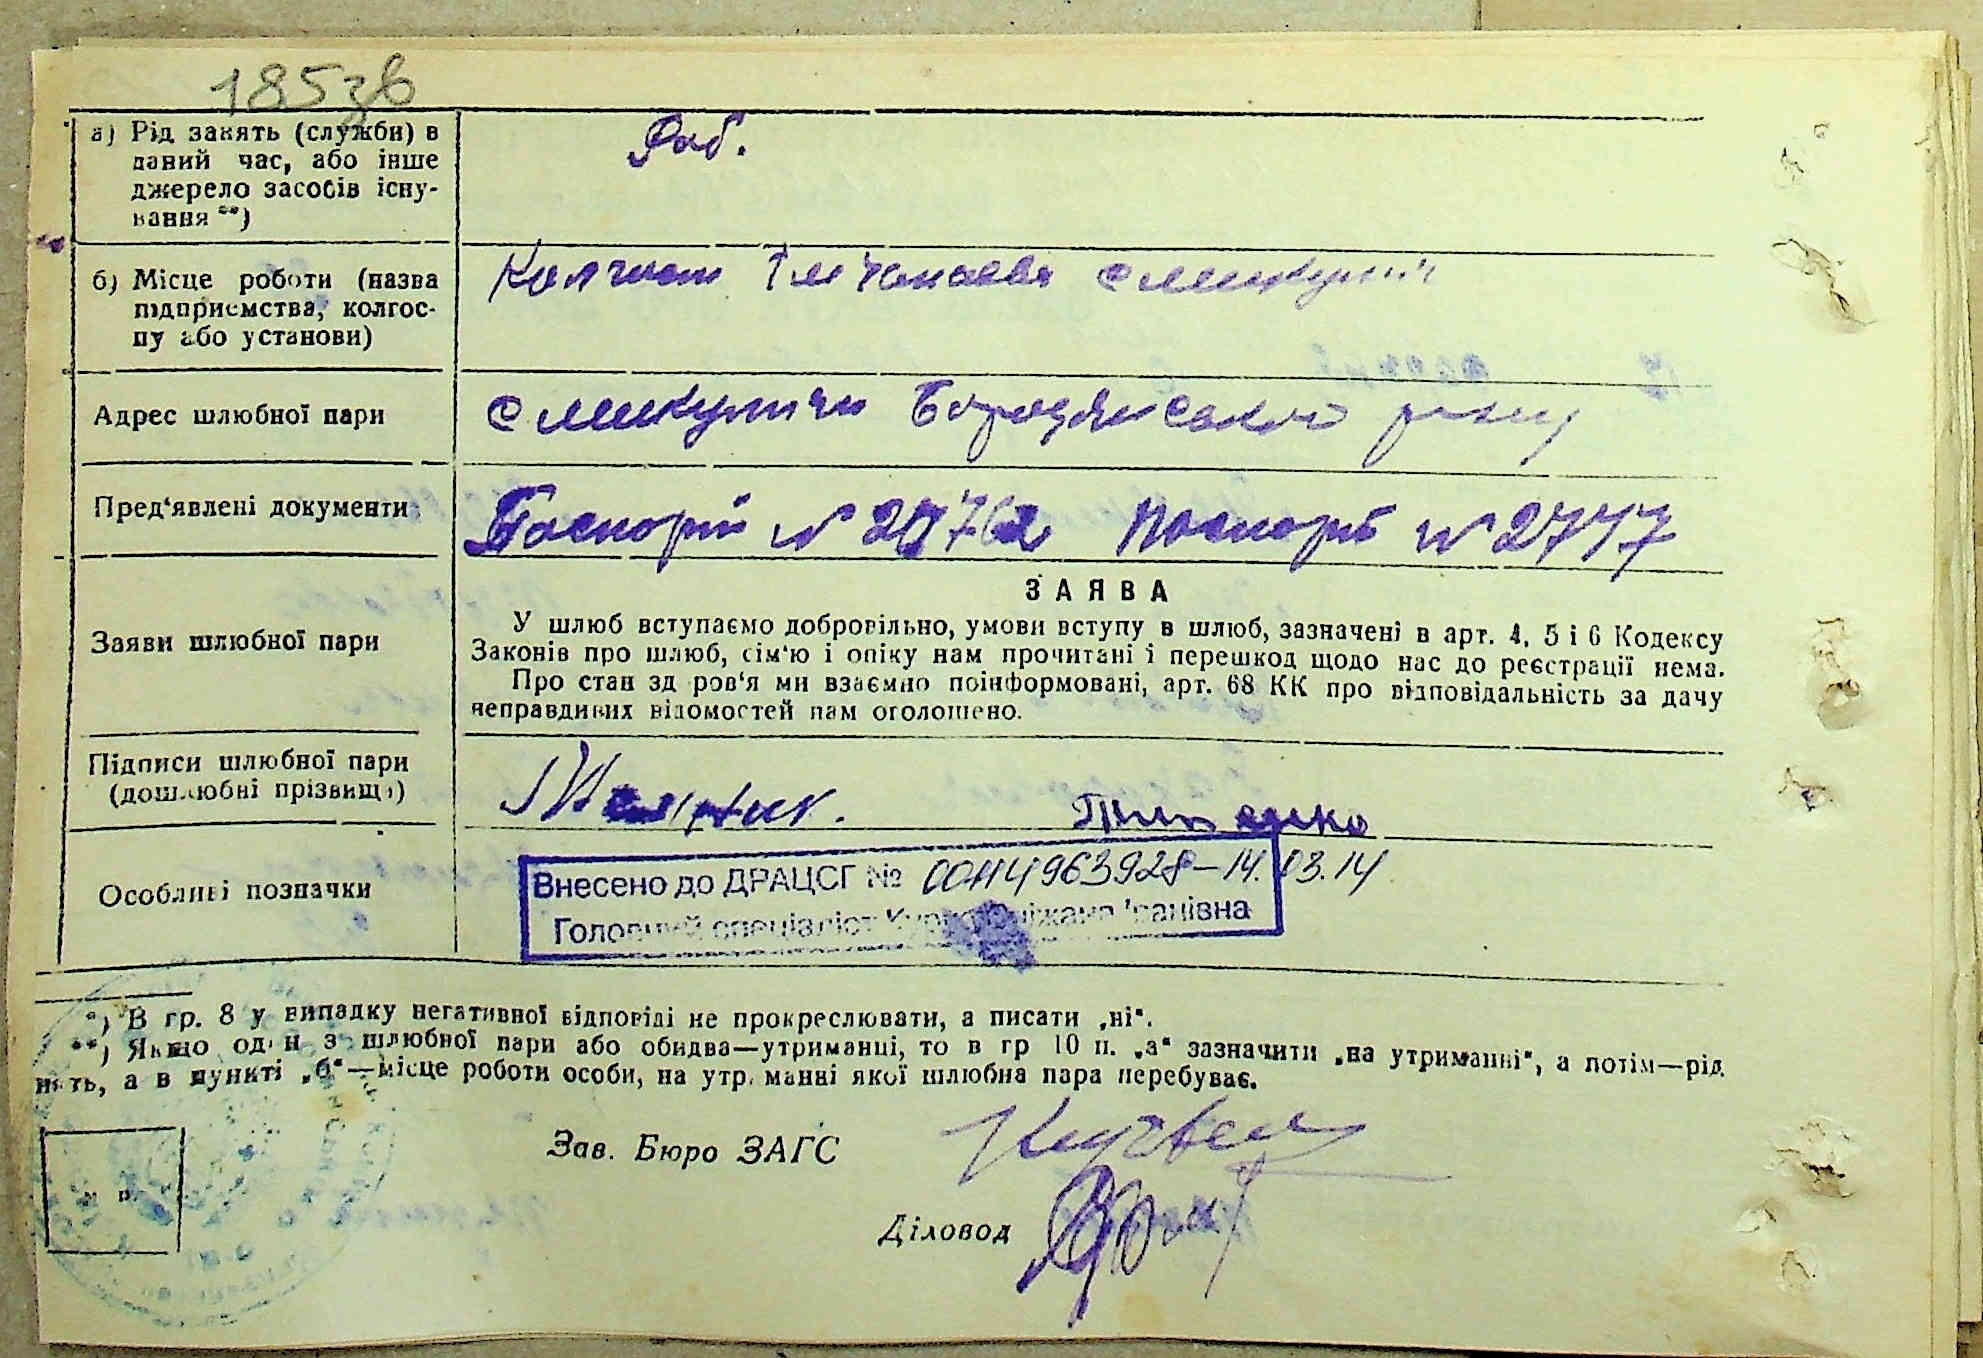 185зв
а) Рід занять (служби) в
даний час, або інше
джерело засобів існу-
вання **)
Роб.
б) Місце роботи (назва
підприємства, колгос-
пу або установи)
Колгосп Ім Чапаєва с Микуличі
Адрес шлюбної пари
с Микуличи Бородянського р-ну
Пред'явлені документи
Паспорт N Паспорт N 2747
ЗАЯВА
Заяви шлюбної пари
У шлюб вступаємо добровільно, умови вступу в шлюб, зазначені в арт. 4, 5 і 6 Кодексу
Законів про шлюб, сім'ю і опіку нам прочитані і перешкод щодо нас до реєстрації нема.
Про стан здоров'я ми взаємно поінформовані, арт. 68 КК про відповідальність за дачу
неправдивих відомостей нам оголошено.
Підписи шлюбної пари
(дошлюбні прізвища)
Особливі позначки
Внесено до ДРАЦСГ № 00114963928-14.03.14
Головний спеціаліст Іванівна
*) В гр. 8 у випадку негативної відповіді не прокреслювати, а писати „ні“.
**) Якщо один з шлюбної пари або обидва—утриманці, то в гр 10 п. „а“ зазначити „на утриманні“, а потім—рід
нять, а в пункті „б“—місце роботи особи, на утриманні якої шлюбна пара перебуває.
Зав. Бюро ЗАГС
М П
Діловод